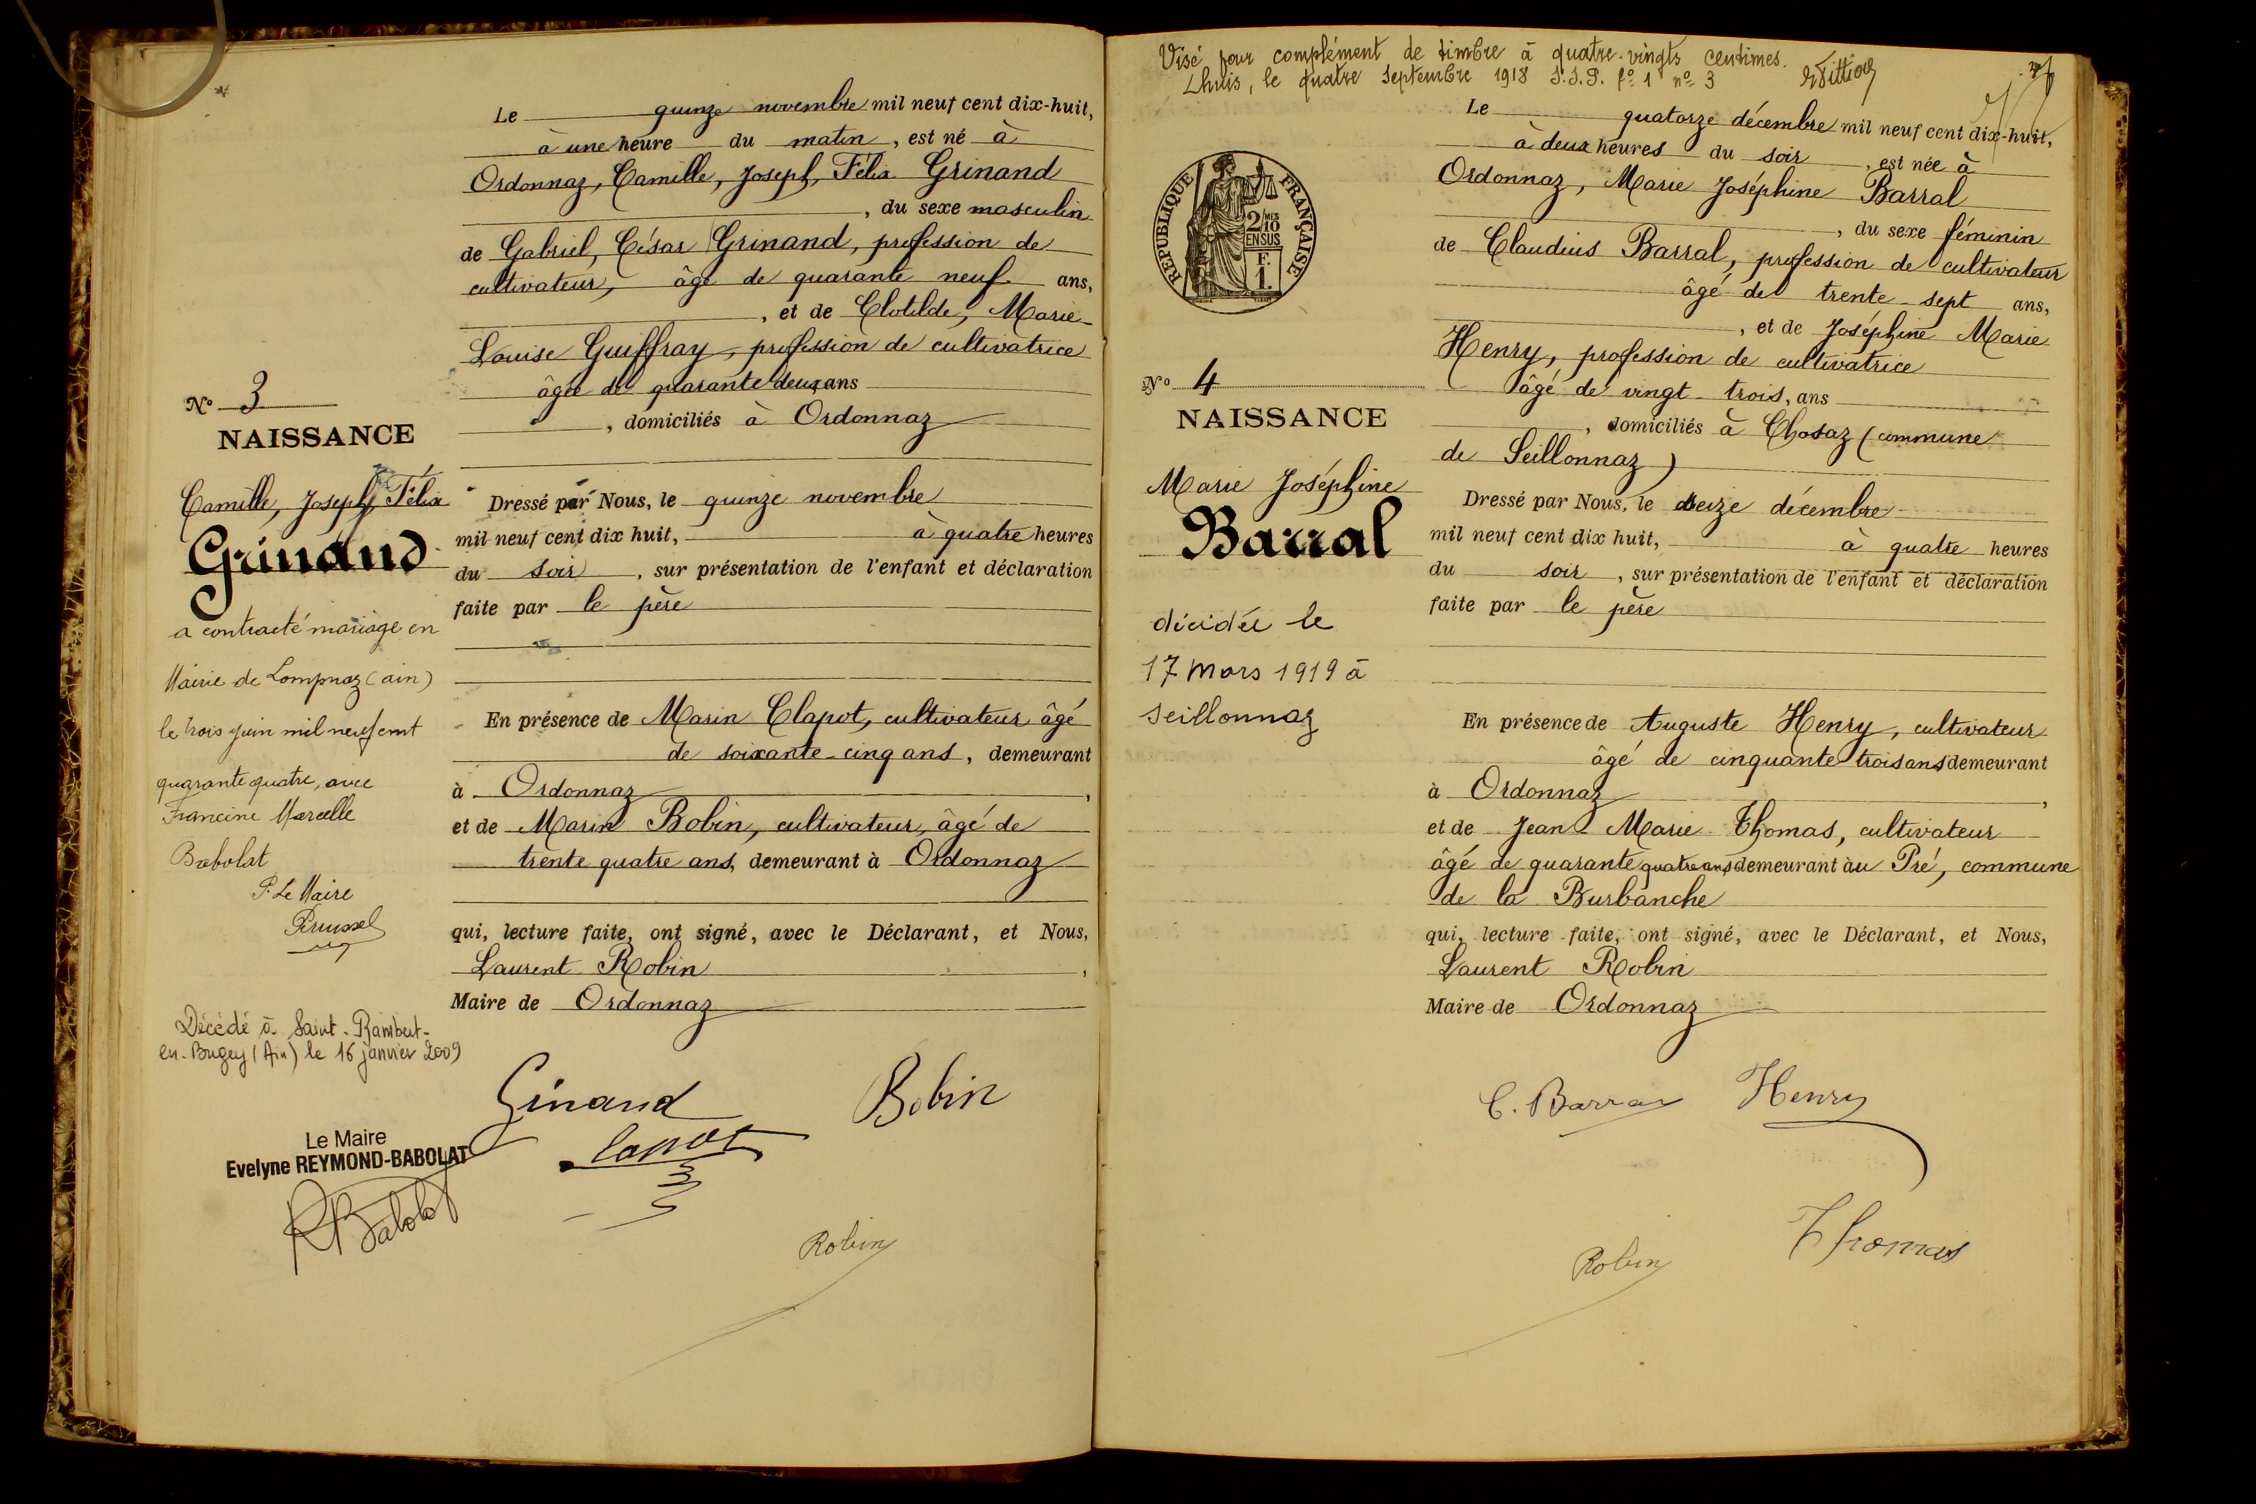 Le quinze novembre mil neuf cent dix-huit,
à une heure du matin, est né à
Ordonnaz, Camille, Joseph, Félix Grinand
, du sexe masculin
de Gabriel, César Grinand, profession de
cultivateur, âgé de quarante neuf ans,
, et de Clotilde, Marie
Louise Guiffray, profession de cultivatrice
âgée de quarante deux ans
, domiciliés à Ordonnaz
No 3
NAISSANCE
Camille, Joseph, Félix
Grinand
a contracté mariage en
Mairie de Lompnaz (ain)
le trois juin mil neuf cent
quarante quatre, avec
Francine Marcelle
Babolat
P. Le Maire
Décédé à Saint-Rambert-
en-Bugey (Ain) le 16 janvier 2009
Le Maire
Evelyne REYMOND-BABOLAT
RBabolat
Dressé par Nous, le quinze novembre
mil neuf cent dix huit, à quatre heures
du soir, sur présentation de l'enfant et déclaration
faite par le père
En présence de Marin Clapot, cultivateur âgé
de soixante-cinq ans, demeurant
à Ordonnaz,
et de Marin Bobin, cultivateur, âgé de
trente quatre ans, demeurant à Ordonnaz
qui, lecture faite, ont signé, avec le Déclarant, et Nous,
Laurent Robin,
Maire de Ordonnaz
Ginand
Bobin
Clapot
Robin
Visé pour complément de timbre à quatre-vingts centimes.
Lhuis, le quatre septembre 1918 fo 1 no 3
Le quatorze décembre mil neuf cent dix-huit,
à deux heures du soir, est née à
Ordonnaz, Marie Joséphine Barral
, du sexe féminin
de Claudius Barral, profession de cultivateur
âgé de trente-sept ans,
, et de Joséphine Marie
Henry, profession de cultivatrice
âgé de vingt-trois, ans
, domiciliés à Chosaz (commune
de Seillonnaz)
RÉPUBLIQUE FRANÇAISE
2/10MES
EN SUS
F.
1.
No 4
NAISSANCE
Marie Joséphine
Barral
décidée le
17 mars 1919 à
Seillonnaz
Dressé par Nous, le seize décembre
mil neuf cent dix huit, à quatre heures
du soir, sur présentation de l'enfant et déclaration
faite par le père
En présence de Auguste Henry, cultivateur
âgé de cinquante trois ans demeurant
à Ordonnaz,
et de Jean Marie Thomas, cultivateur
âgé de quarante quatre ans demeurant au Pré, commune
de la Burbanche
qui, lecture faite, ont signé, avec le Déclarant, et Nous,
Laurent Robin
Maire de Ordonnaz
C. Barral
Henry
Robin
Thomas